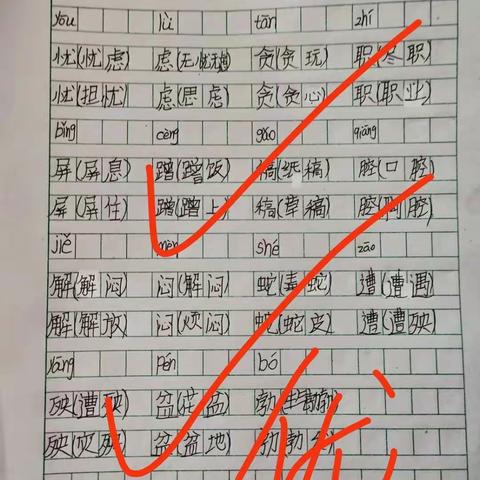 yōu lǜ tān zhí
忧(忧虑) 虑(无忧无虑) 贪(贪玩) 职(尽职)
忧(担忧) 虑(思虑) 贪(贪心) 职(职业)
bǐng cèng gǎo qiāng
屏(屏息) 蹭(蹭饭) 稿(纸稿) 腔(口腔)
屏(屏住) 蹭(蹭上) 稿(草稿) 腔(胸腔)
jiě mèn shé zāo
解(解闷) 闷(解闷) 蛇(毒蛇) 遭(遭遇)
解(解放) 闷(炊闷) 蛇(蛇皮) 遭(遭殃)
yāng pén bó
殃(遭殃) 盆(花盆) 勃(生勃勃)
殃(灾殃) 盆(盆地) 勃(勃
优